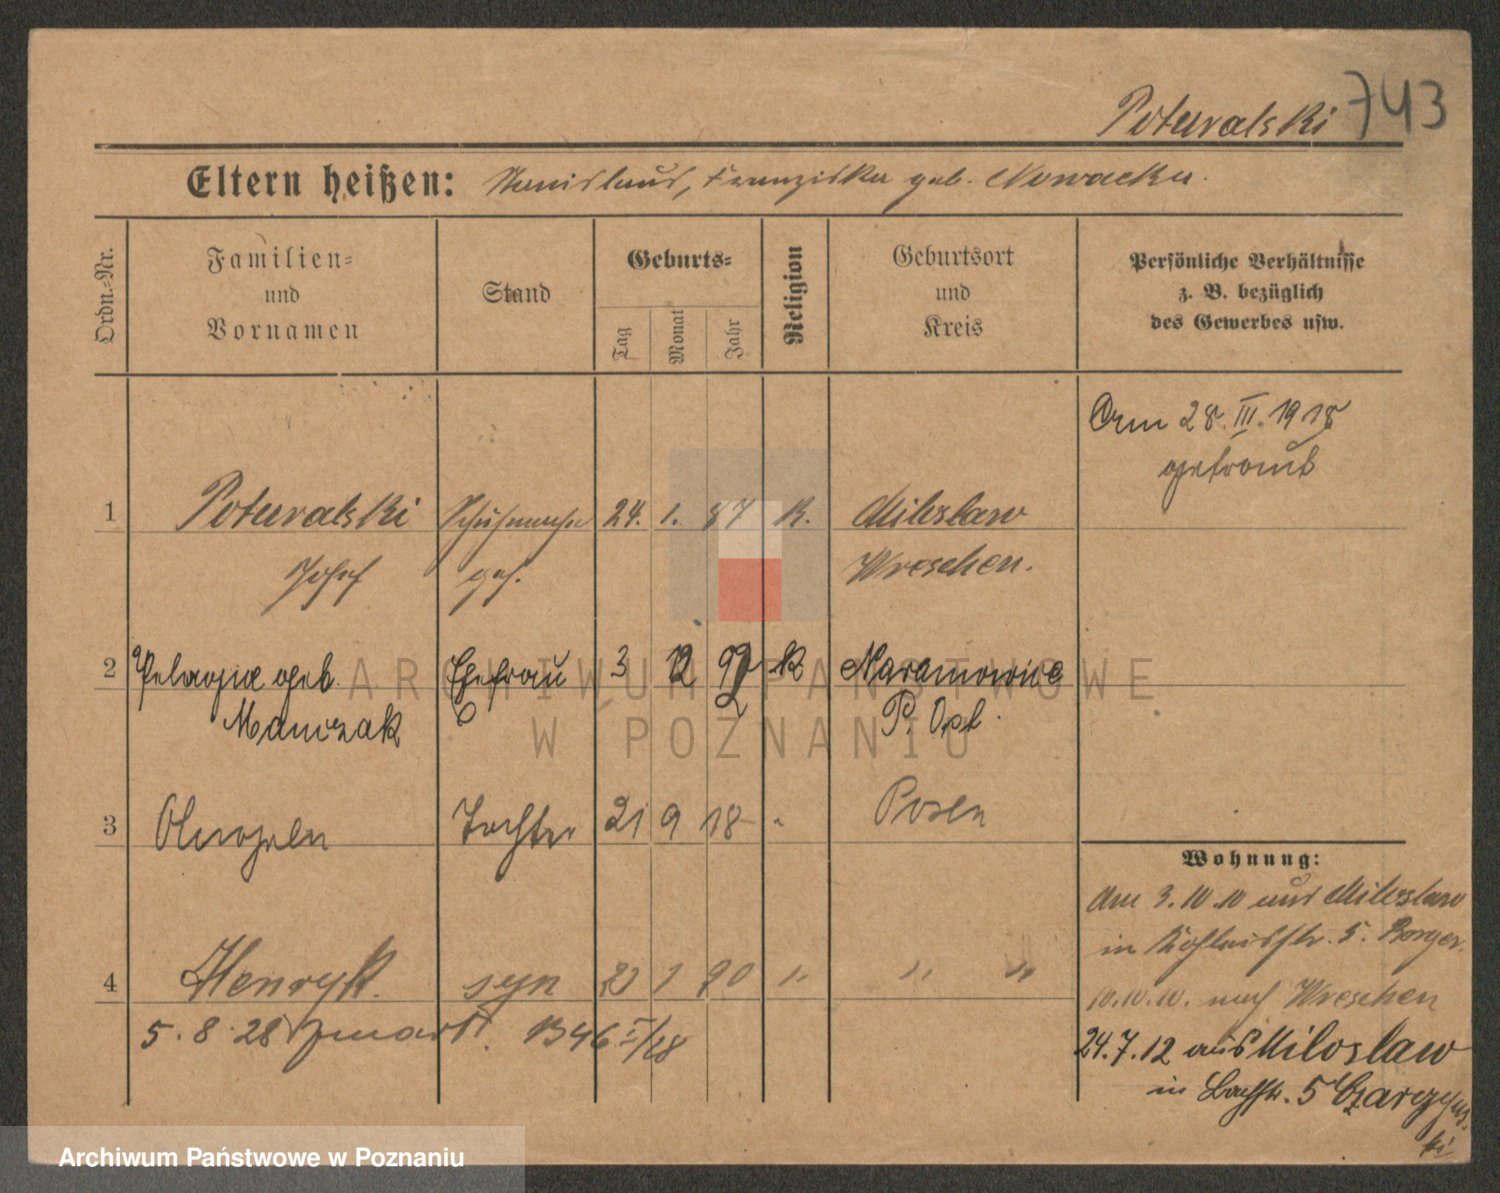 Poturalski 743
Eltern heißen: Stanislaus, Franziska geb. Nowacka.
Ordn.-Nr.
Familien-
und
Vornamen
Stand
Geburts-
Tag
Monat
Jahr
Religion
Geburtsort
und
Kreis
Persönliche Verhältnisse
z. B. bezüglich
des Gewerbes usw.
Am 28. III. 1918
getraut
1 Poturalski Schuhmacher 24. 1. 87 K. Miloslaw
Josef ges. Wreschen.
2 Pelagia geb. Ehefrau 3 12 92 K Naramowice
Manczak P. Ost.
3 Tochter 21 9 18 " Posen
4 Henryk. syn 1 20 " " "
5.8.28 zmarł. B 46 I/28
Wohnung:
Am 3.10.10 aus Miloslaw
in 5.
10.10.10. nach Wreschen
24.7.12 aus Miloslaw
in Bachstr. 5
ARCHIWUM PAŃSTWOWE
W POZNANIU
Archiwum Państwowe w Poznaniu